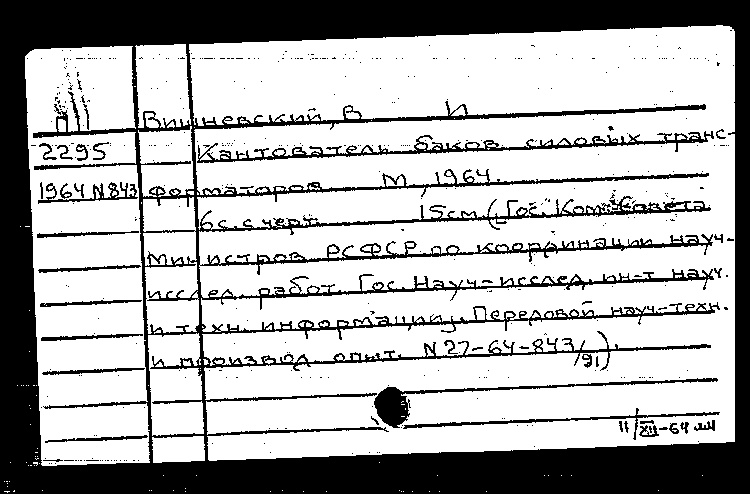 П
Вишневский, В И
2295 Кантователь баков силовых транс-
1964 N843 форматоров М, 1964.
6 с. с черт. 15 см. (Гос. Ком. Совета
Министров РСФСР по координации науч-
исслед. работ. Гос. Науч-исслед. ин-т науч.
и техн. информации. Передовой науч.-техн.
и производ. опыт. N 27-64-843/91).
11/XII-64